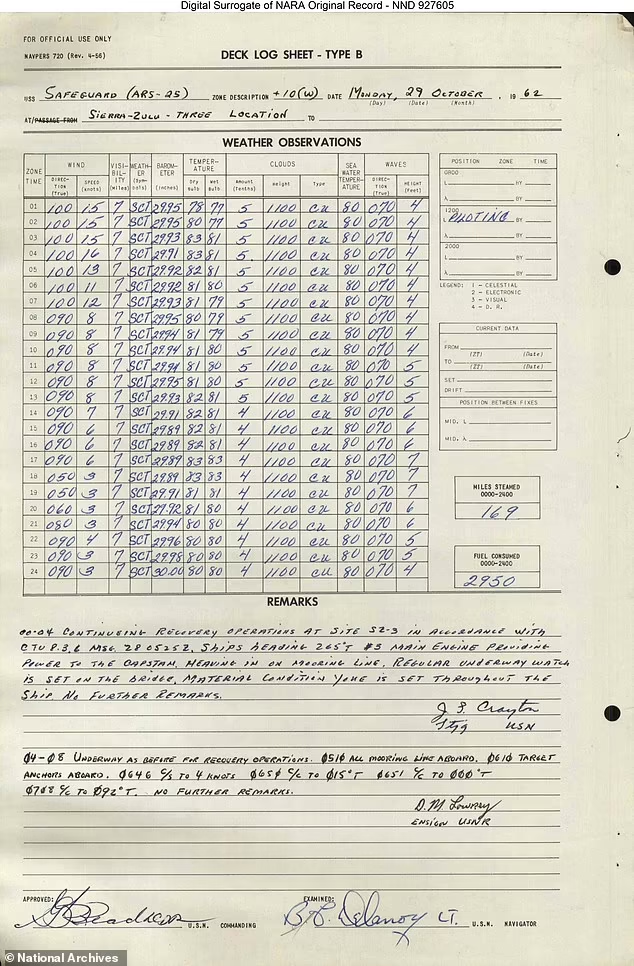 Digital Surrogate of NARA Original Record - NND 927605
FOR OFFICIAL USE ONLY
NAVPERS 720 (Rev. 4-56)
DECK LOG SHEET - TYPE B
USS SAFEGUARD (ARS-25) ZONE DESCRIPTION +10(W) DATE MONDAY, 29 OCTOBER, 19 62
(Day) (Date) (Month)
AT/PASSAGE FROM SIERRA-ZULU-THREE LOCATION TO
WEATHER OBSERVATIONS
ZONE TIME WIND VISIBILITY (Miles) WEATHER (Symbols) BAROMETER (Inches) TEMPERATURE CLOUDS SEA WATER TEMPERATURE WAVES
DIRECTION (True) SPEED (knots) Dry Bulb Wet Bulb Amount (Tenths) Height Type DIRECTION (True) HEIGHT (Feet)
01 100 15 7 SCT 29.95 78 77 5 1100 CU 80 070 4
02 100 15 7 SCT 29.95 80 77 5 1100 CU 80 070 4
03 100 15 7 SCT 29.93 83 81 5 1100 CU 80 070 4
04 100 16 7 SCT 29.91 83 81 5 1100 CU 80 070 4
05 100 13 7 SCT 29.92 82 81 5 1100 CU 80 070 4
06 100 11 7 SCT 29.92 81 80 5 1100 CU 80 070 4
07 100 12 7 SCT 29.93 81 79 5 1100 CU 80 070 4
08 090 8 7 SCT 29.95 80 79 5 1100 CU 80 070 4
09 090 8 7 SCT 29.94 81 79 5 1100 CU 80 070 4
10 090 8 7 SCT 29.94 81 80 5 1100 CU 80 070 4
11 090 8 7 SCT 29.94 81 80 5 1100 CU 80 070 5
12 090 8 7 SCT 29.95 81 80 5 1100 CU 80 070 5
13 090 8 7 SCT 29.93 82 81 5 1100 CU 80 070 5
14 090 7 7 SCT 29.91 82 81 4 1100 CU 80 070 6
15 090 6 7 SCT 29.89 82 81 4 1100 CU 80 070 6
16 090 6 7 SCT 29.89 82 81 4 1100 CU 80 070 6
17 090 6 7 SCT 29.89 83 83 4 1100 CU 80 070 7
18 050 3 7 SCT 29.89 83 83 4 1100 CU 80 070 7
19 050 3 7 SCT 29.91 81 81 4 1100 CU 80 070 7
20 060 3 7 SCT 29.92 81 80 4 1100 CU 80 070 6
21 080 3 7 SCT 29.94 80 80 4 1100 CU 80 070 6
22 090 4 7 SCT 29.96 80 80 4 1100 CU 80 070 5
23 090 3 7 SCT 29.98 80 80 4 1100 CU 80 070 5
24 090 3 7 SCT 30.00 80 80 4 1100 CU 80 070 4
POSITION ZONE TIME
0800
L BY
λ BY
1200
L PILOTING BY
λ BY
2000
L BY
λ BY
LEGEND: 1 - CELESTIAL
2 - ELECTRONIC
3 - VISUAL
4 - D. R.
CURRENT DATA
FROM
(ZT) (Date)
TO
(ZT) (Date)
SET
DRIFT
POSITION BETWEEN FIXES
MID. L
MID. λ
MILES STEAMED
0000-2400
169
FUEL CONSUMED
0000-2400
2950
REMARKS
00-04 CONTINUING RECOVERY OPERATIONS AT SITE SZ-3 IN ACCORDANCE WITH
CTU 8.3.6 MSG. 280525Z, SHIPS HEADING 265°T #3 MAIN ENGINE PROVIDING
POWER TO THE CAPSTAN. HEAVING IN ON MOORING LINE. REGULAR UNDERWAY WATCH
IS SET ON THE BRIDGE, MATERIAL CONDITION YOKE IS SET THROUGHOUT THE
SHIP. NO FURTHER REMARKS.
USN
04-08 UNDERWAY AS BEFORE FOR RECOVERY OPERATIONS. 0510 ALL MOORING LINE ABOARD, 0610 TARGET
ANCHORS ABOARD. 0646 C/S TO 4 KNOTS 0650 C/C TO 015°T 0651 C/C TO 000°T
0708 C/C TO 092°T. NO FURTHER REMARKS.
D.M. LOWREY
ENSIGN USNR
APPROVED: U.S.N. COMMANDING
EXAMINED: LT. U.S.N. NAVIGATOR
© National Archives